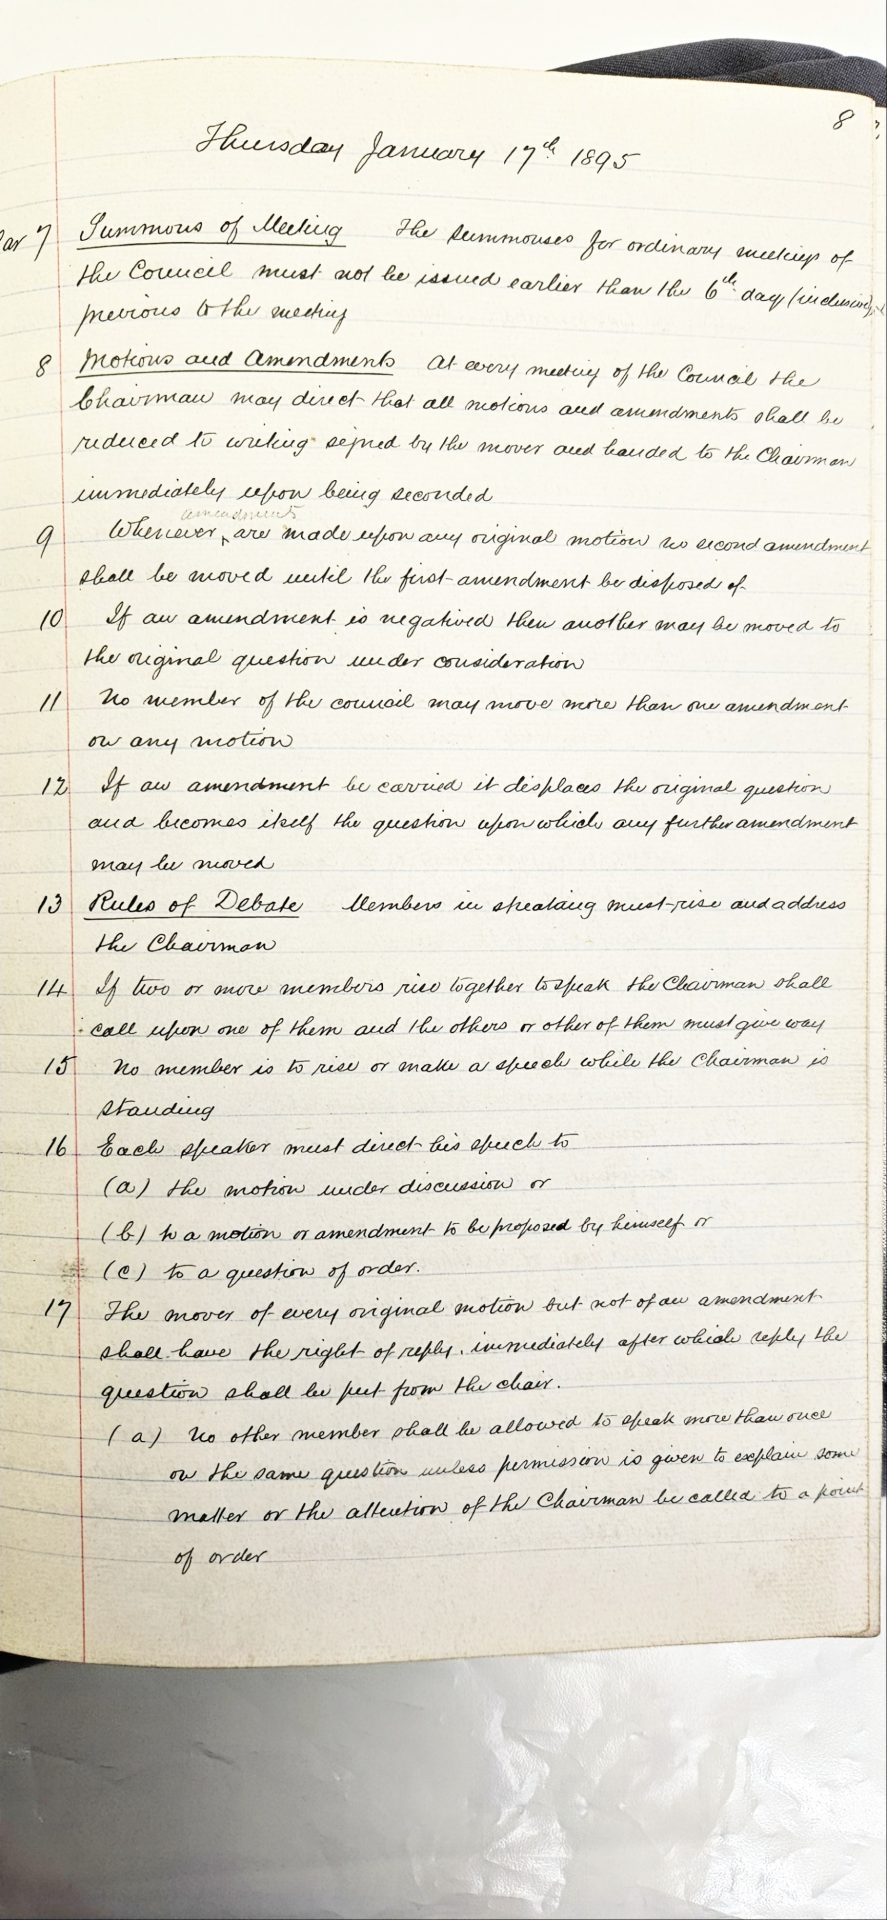 8
Thursday January 17th 1895
Par 7 Summons of Meeting The summonses for ordinary meetings of
the Council must not be issued earlier than the 6th day (inclusive)
previous to the meeting
8 Motions and Amendments At every meeting of the Council the
Chairman may direct that all motions and amendments shall be
reduced to writing signed by the mover and handed to the Chairman
immediately upon being seconded
amendments
9 Whenever ‸ are made upon any original motion no second amendment
shall be moved until the first amendment be disposed of
10 If an amendment is negatived then another may be moved to
the original question under consideration
11 No member of the council may move more than one amendment
on any motion
12 If an amendment be carried it displaces the original question
and becomes itself the question upon which any further amendment
may be moved
13 Rules of Debate Members in speaking must rise and address
the Chairman
14 If two or more members rise together to speak the Chairman shall
call upon one of them and the others or other of them must give way
15 No member is to rise or make a speech while the Chairman is
standing
16 Each speaker must direct his speech to
(a) the motion under discussion or
(b) to a motion or amendment to be proposed by himself or
(c) to a question of order.
17 The mover of every original motion but not of an amendment
shall have the right of reply. immediately after which reply the
question shall be put from the chair.
(a) No other member shall be allowed to speak more than once
on the same question unless permission is given to explain some
matter or the attention of the Chairman be called to a point
of order